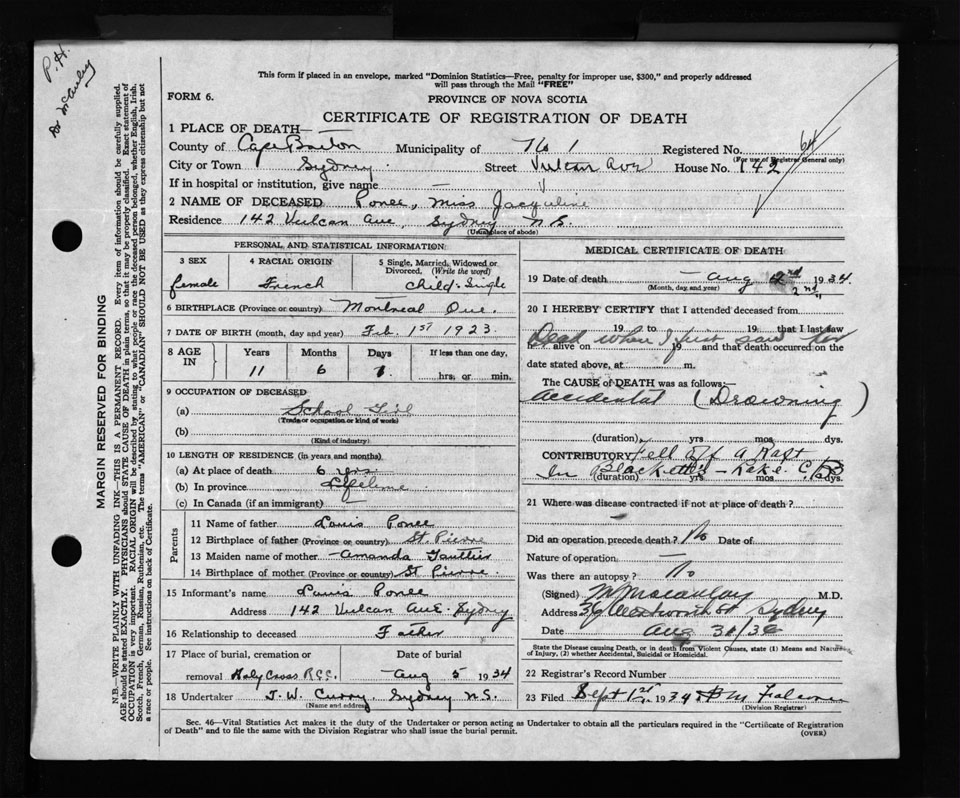 P.H.
McAuley
This form if placed in an envelope, marked "Dominion Statistics—Free, penalty for improper use, $300," and properly addressed
will pass through the Mail "FREE"
FORM 6.
PROVINCE OF NOVA SCOTIA
CERTIFICATE OF REGISTRATION OF DEATH
1 PLACE OF DEATH—
County of Cape Breton Municipality of No 1 Registered No. 64
(For use of Registrar General only)
City or Town Sydney Street Vulcan Ave House No. 142
If in hospital or institution, give name —
2 NAME OF DECEASED Ponee, Miss Jacqueline
Residence 142 Vulcan Ave, Sydney N.S.
(Usual place of abode)
PERSONAL AND STATISTICAL INFORMATION
3 SEX female
4 RACIAL ORIGIN French
5 Single, Married, Widowed or Divorced, (Write the word) Child-Single
6 BIRTHPLACE (Province or country) Montreal Que.
7 DATE OF BIRTH (month, day and year) Feb. 1st 1923
8 AGE IN Years Months Days If less than one day,
11 6 1 hrs. or min.
9 OCCUPATION OF DECEASED
(a) School Girl
(Trade or occupation or kind of work)
(b)
(Kind of industry)
10 LENGTH OF RESIDENCE (in years and months)
(a) At place of death 6 yrs
(b) In province Lifetime
(c) In Canada (if an immigrant) —
Parents
11 Name of father Louis Ponee
12 Birthplace of father (Province or country) St. Pierre
13 Maiden name of mother Amanda Gauthier
14 Birthplace of mother (Province or country) St Pierre
15 Informant's name Louis Ponee
Address 142 Vulcan Ave. Sydney
16 Relationship to deceased Father
17 Place of burial, cremation or removal Holy Cross R.C.C. Date of burial Aug 5 1934
18 Undertaker J. W. Curry, Sydney N.S.
(Name and address)
MEDICAL CERTIFICATE OF DEATH
19 Date of death Aug 2nd 1934
2nd
(Month, day and year)
20 I HEREBY CERTIFY that I attended deceased from
19 to 19 that I last saw
Dead when I first saw her
alive on 19 and that death occurred on the
date stated above, at m.
The CAUSE of DEATH was as follows:—
Accidental (Drowning)
(duration) yrs mos dys.
CONTRIBUTORY Fell off a Raft
In Blacketts Lake C.B.
(duration) yrs mos dys.
21 Where was disease contracted if not at place of death?
—
Did an operation precede death? No Date of
Nature of operation —
Was there an autopsy? No
(Signed) M Macaulay M.D.
Address Wentworth St Sydney
Date Aug
State the Disease causing Death, or in death from Violent Causes, state (1) Means and Nature of Injury, (2) whether Accidental, Suicidal or Homicidal.
22 Registrar's Record Number
23 Filed Sept 1934
(Division Registrar)
Sec. 46—Vital Statistics Act makes it the duty of the Undertaker or person acting as Undertaker to obtain all the particulars required in the "Certificate of Registration
of Death" and to file the same with the Division Registrar who shall issue the burial permit.
(OVER)
MARGIN RESERVED FOR BINDING
N.B.—WRITE PLAINLY WITH UNFADING INK—THIS IS A PERMANENT RECORD. Every item of information should be carefully supplied.
AGE should be stated EXACTLY. PHYSICIANS should STATE CAUSE OF DEATH in plain terms, so that it may be properly classified. Exact statement of
OCCUPATION is very important. RACIAL ORIGIN will be described by stating to what people or race the deceased person belonged, whether English, Irish,
Scotch, French, German, Russian, Ruthenian, etc. The terms "AMERICAN" or "CANADIAN" SHOULD NOT BE USED as they express citizenship but not
a race or people. See instructions on back of Certificate.